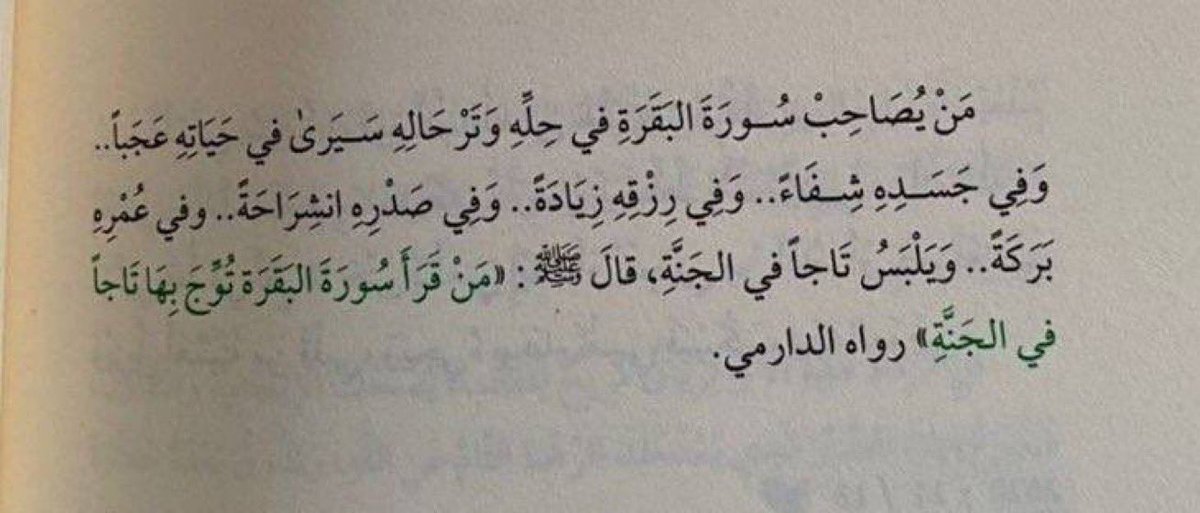 مَنْ يُصَاحِبْ سُـورَةَ البَقَرَةِ في حِلِّهِ وَتَرْحَالِهِ سَـيَرىٰ في حَيَاتِهِ عَجَباً..
وَفِي جَسَـدِهِ شِـفَاءً.. وَفِي رِزْقِهِ زِيَادَةً.. وَفِي صَدْرِهِ انشِرَاحَةً.. وفي عُمْرِهِ
بَرَكَةً.. وَيَلْبَسُ تَاجاً في الجَنَّةِ، قالَ ﷺ: «مَنْ قَرَأَ سُورَةَ البَقَرَة تُوِّجَ بِهَا تَاجاً
في الجَنَّةِ» رواه الدارمي.